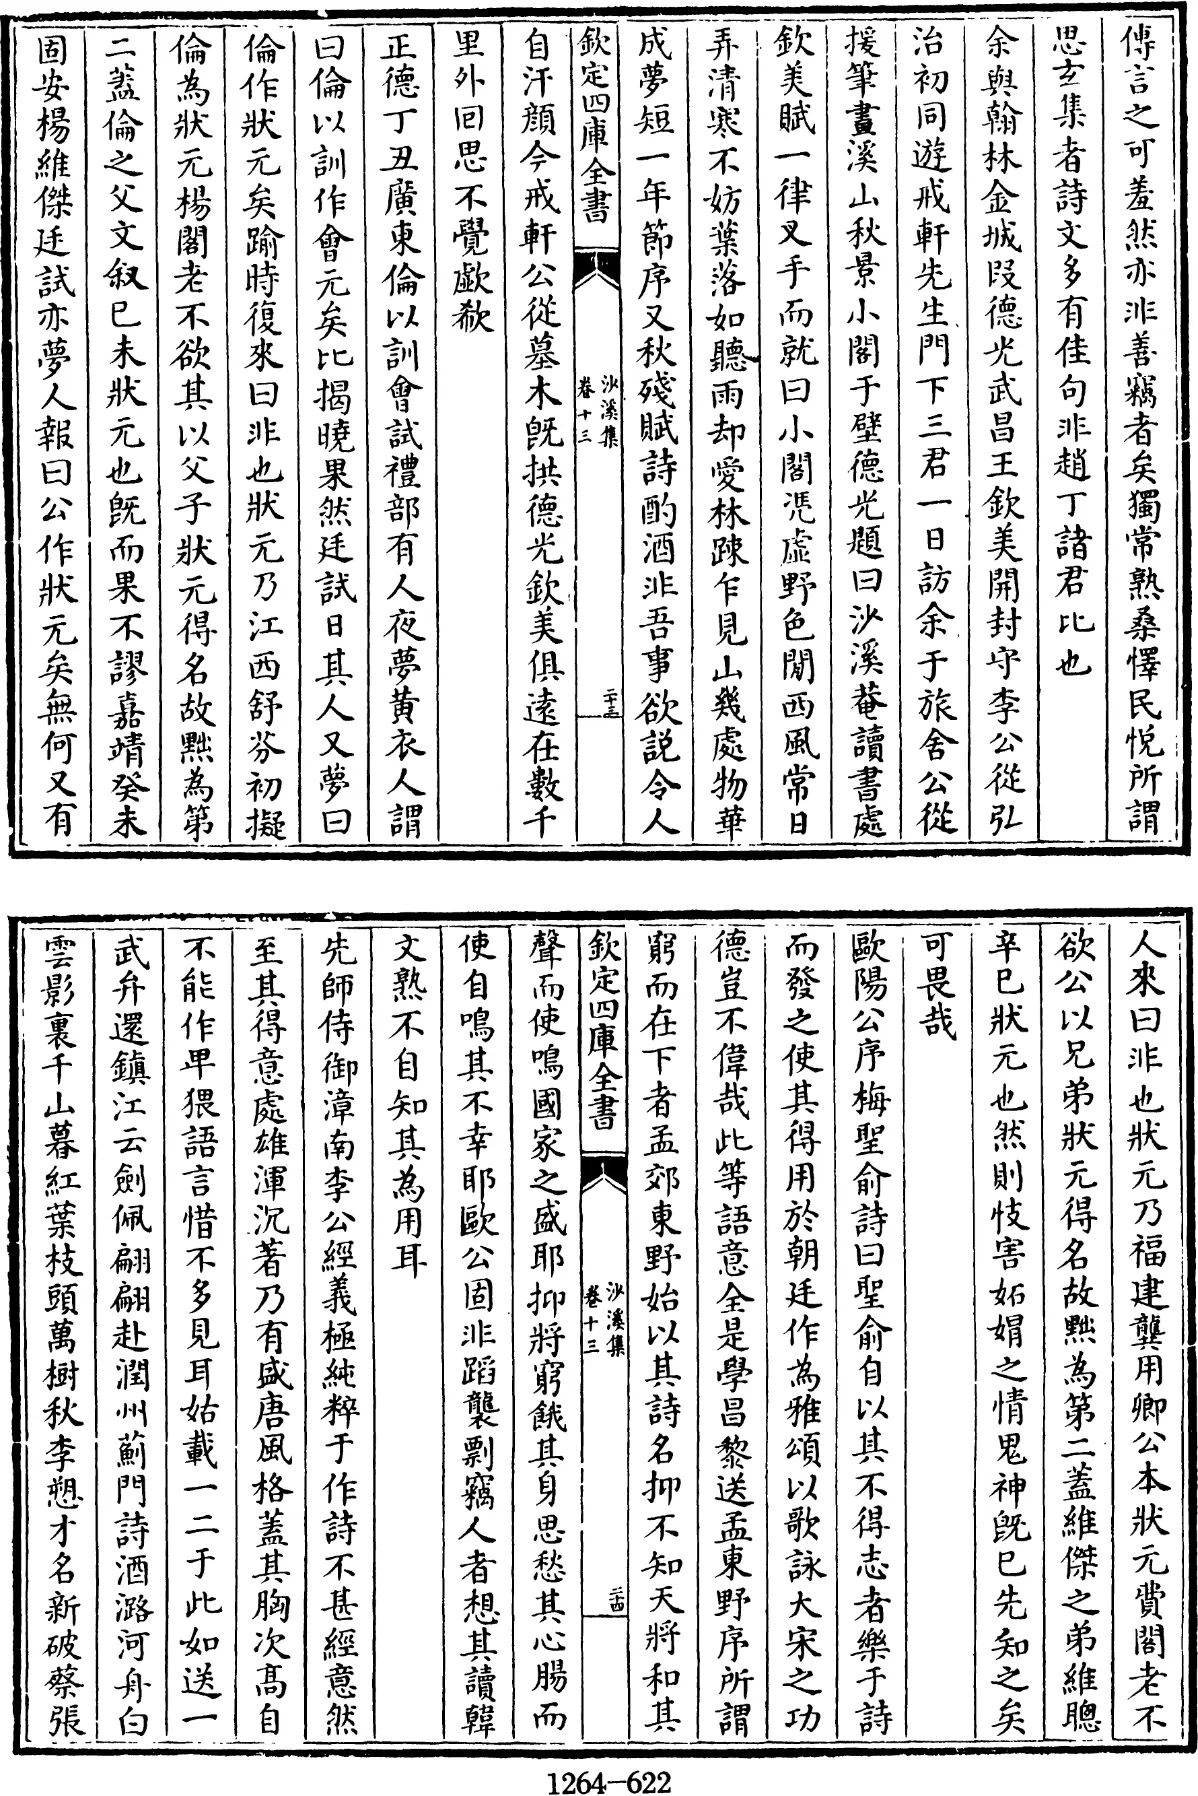 傳言之可羞然亦非善竊者矣獨常熟桑懌民悅所謂
思玄集者詩文多有佳句非趙丁諸君比也
余與翰林金城段德光武昌王欽美開封守李公從弘
治初同遊戒軒先生門下三君一日訪余于旅舍公從
援筆畫溪山秋景小閣于壁德光題曰沙溪菴讀書處
欽美賦一律叉手而就曰小閣凭虛野色閒西風常日
弄清寒不妨葉落如聽雨却愛林踈乍見山幾處物華
成夢短一年節序又秋殘賦詩酌酒非吾事欲說令人
欽定四庫全書
沙溪集
卷十三
二十三
自汗顔今戒軒公從墓木旣拱德光欽美俱遠在數千
里外回思不覺歔欷
正德丁丑廣東倫以訓會試禮部有人夜夢黄衣人謂
曰倫以訓作會元矣比揭曉果然廷試日其人又夢曰
倫作狀元矣踰時復來曰非也狀元乃江西舒芬初擬
倫為狀元楊閣老不欲其以父子狀元得名故黜為第
二蓋倫之父文叙已未狀元也旣而果不謬嘉靖癸未
固安楊維傑廷試亦夢人報曰公作狀元矣無何又有
人來曰非也狀元乃福建龔用卿公本狀元費閣老不
欲公以兄弟狀元得名故黜為第二蓋維傑之弟維聰
辛巳狀元也然則忮害妬媢之情鬼神旣已先知之矣
可畏哉
歐陽公序梅聖俞詩曰聖俞自以其不得志者樂于詩
而發之使其得用於朝廷作為雅頌以歌詠大宋之功
德豈不偉哉此等語意全是學昌黎送孟東野序所謂
窮而在下者孟郊東野始以其詩名抑不知天將和其
欽定四庫全書
沙溪集
卷十三
二十四
聲而使鳴國家之盛耶抑將窮餓其身思愁其心腸而
使自鳴其不幸耶歐公固非蹈襲剽竊人者想其讀韓
文熟不自知其為用耳
先師侍御漳南李公經義極純粹于作詩不甚經意然
至其得意處雄渾沉著乃有盛唐風格蓋其胸次髙自
不能作卑猥語言惜不多見耳姑載一二于此如送一
武弁還鎮江云劍佩翩翩赴潤州薊門詩酒潞河舟白
雲影裏千山暮紅葉枝頭萬樹秋李愬才名新破蔡張
1264-622